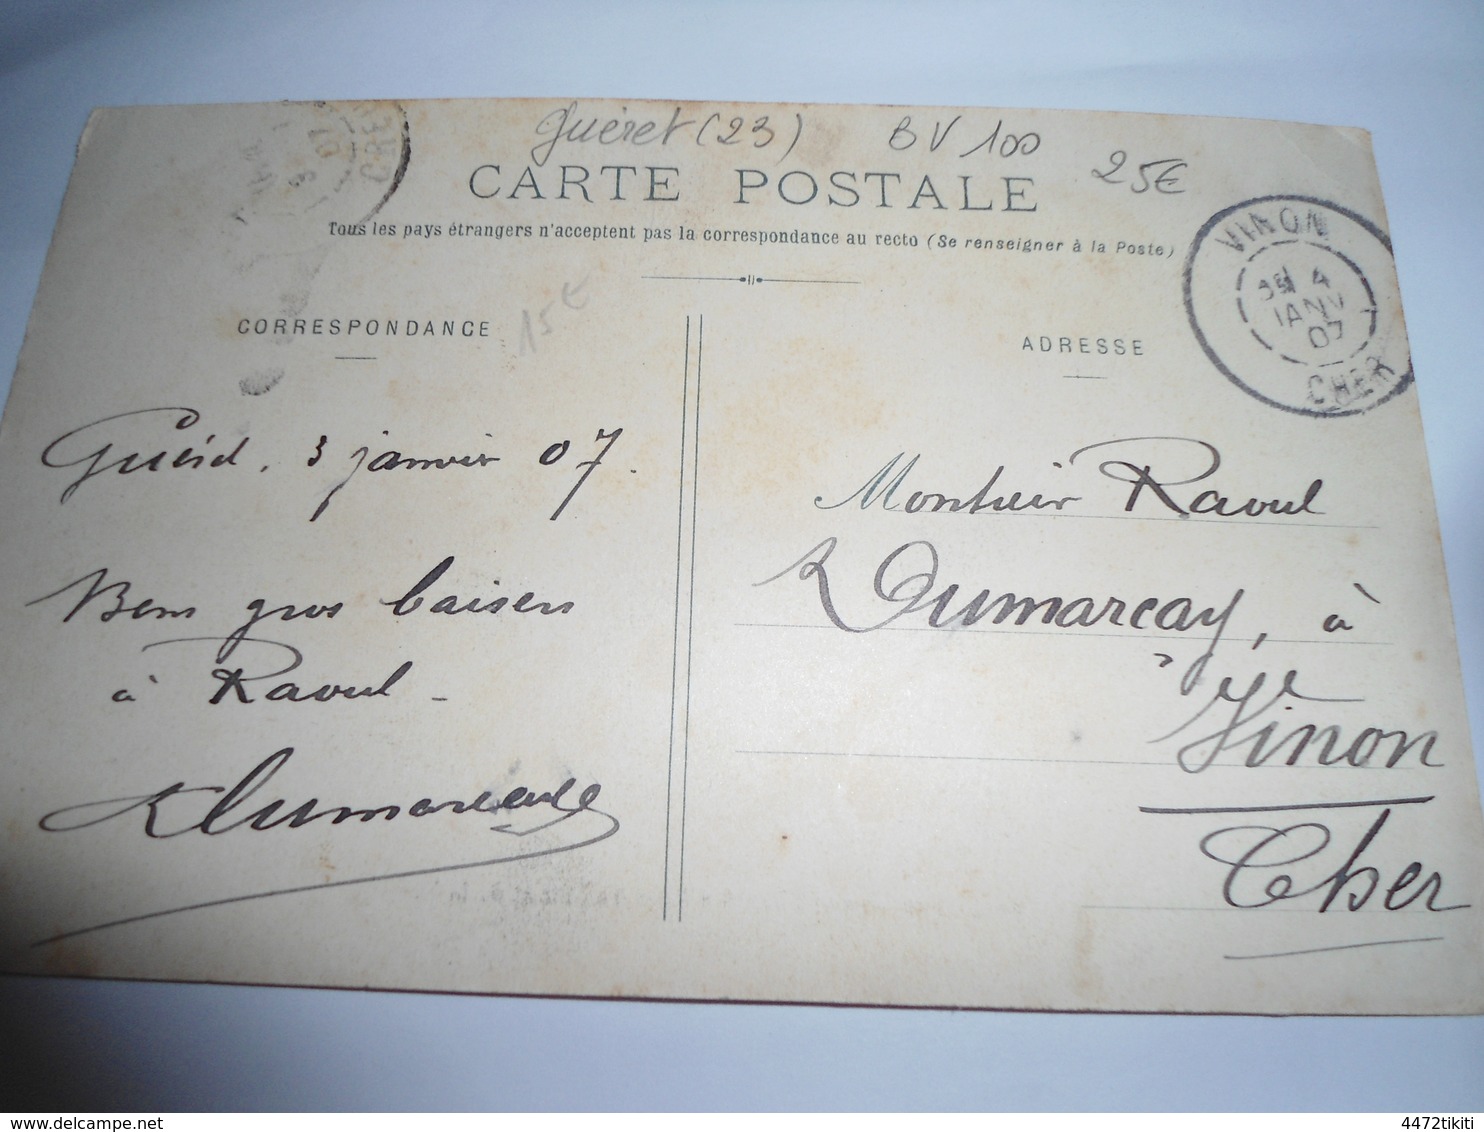 Guéret (23) BV 100
25€
CARTE POSTALE
Tous les pays étrangers n'acceptent pas la correspondance au recto (Se renseigner à la Poste)
VINON
4
JANV
07
CHER
CORRESPONDANCE
15€
ADRESSE
Guéret, 3 janvier 07.
Bons gros baisers
à Raoul -
Dumarcay
Monsieur Raoul
Dumarcay, à
Vinon
Cher
delcampe.net
4472tikiti